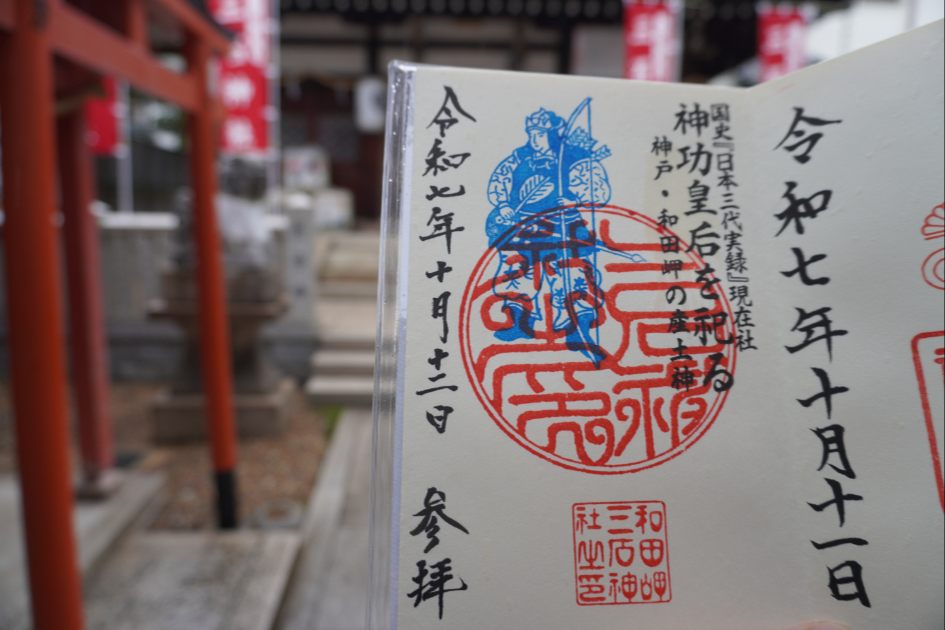 令和七年十月十一日
国史『日本三代実録』現在社
神功皇后を祀る
神戸・和田岬の産土神
三石神社印
和田岬
三石神
社之印
令和七年十月十二日
参拝